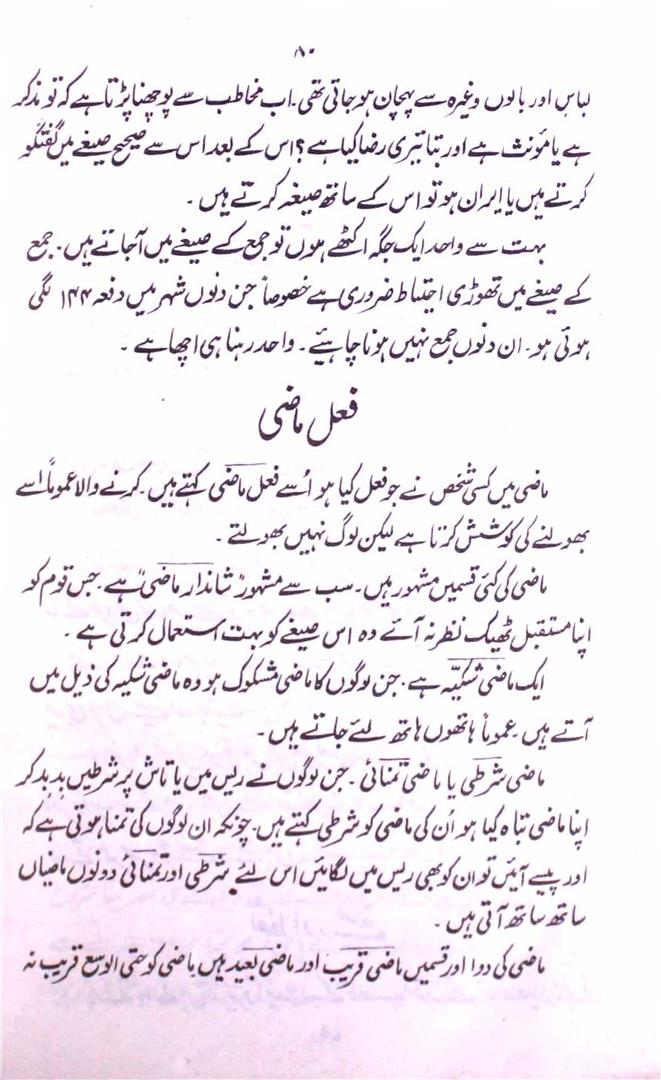 ۸۰
لباس اور بالوں وغیرہ سے پہچان ہو جاتی تھی۔ اب مخاطب سے پوچھنا پڑتا ہے کہ تو مذکر
ہے یا مؤنث ہے اور بتا تیری رضا کیا ہے؟ اس کے بعد اس سے صحیح صیغے میں گفتگو
کرتے ہیں یا ایران ہو تو اس کے ساتھ صیغہ کرتے ہیں۔
بہت سے واحد ایک جگہ اکٹھے ہوں تو جمع کے صیغے میں آجاتے ہیں۔ جمع
کے صیغے میں تھوڑی احتیاط ضروری ہے خصوصاً جن دنوں شہر میں دفعہ ۱۴۴ لگی
ہوئی ہو۔ ان دنوں جمع نہیں ہونا چاہیئے۔ واحد رہنا ہی اچھا ہے۔
فعل ماضی
ماضی میں کسی شخص نے جو فعل کیا ہو اُسے فعل ماضی کہتے ہیں۔ کرنے والا عموماً اسے
بھولنے کی کوشش کرتا ہے لیکن لوگ نہیں بھولتے۔
ماضی کی کئی قسمیں مشہور ہیں۔ سب سے مشہور "شاندار ماضی" ہے۔ جس قوم کو
اپنا مستقبل ٹھیک نظر نہ آئے وہ اس صیغے کو بہت استعمال کرتی ہے۔
ایک ماضی شکیّہ ہے۔ جن لوگوں کا ماضی مشکوک ہو وہ ماضی شکیہ کی ذیل میں
آتے ہیں۔ عموماً ہاتھوں ہاتھ لئے جاتے ہیں۔
ماضی شرطی یا ماضی تمنائی۔ جن لوگوں نے ریس میں یا تاش پر شرطیں بد بد کر
اپنا ماضی تباہ کیا ہو اُن کی ماضی کو شرطی کہتے ہیں۔ چونکہ ان لوگوں کی تمنا ہوتی ہے کہ
اور پیسے آئیں تو ان کو بھی ریس میں لگائیں اس لئے شرطی اور تمنائی دونوں ماضیاں
ساتھ ساتھ آتی ہیں۔
ماضی کی دو اور قسمیں ماضی قریب اور ماضی بعید ہیں۔ ماضی کو حتی الوسع قریب نہ